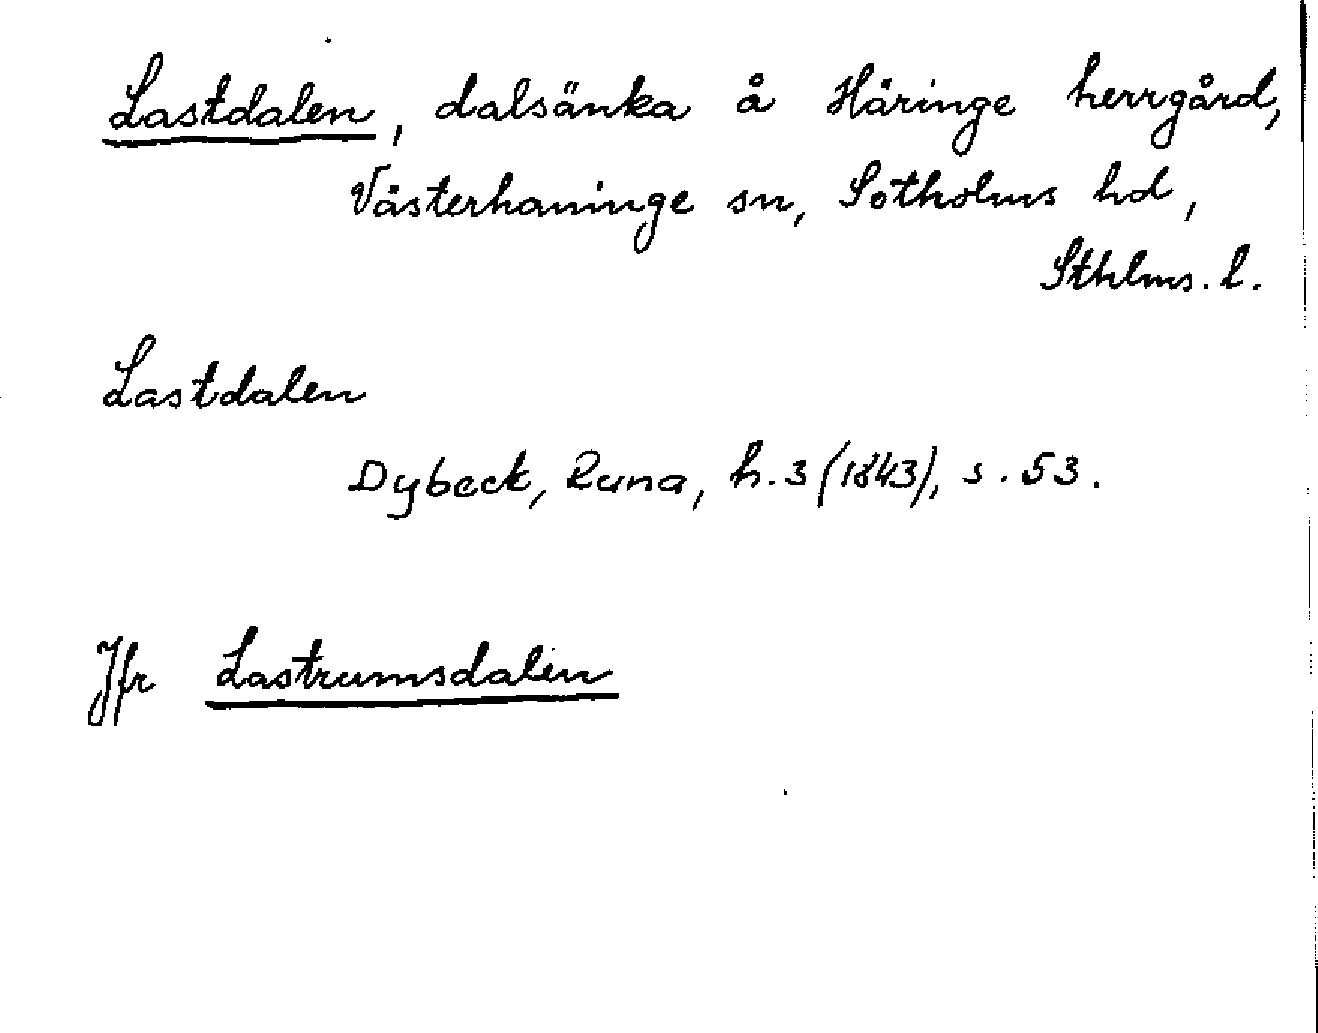 Lastdalen, dalsänka å Häringe herrgård,
Västerhaninge sn, Sotholms hd,
Sthlms. l.
Lastdalen
Dybeck, Runa, h. 3 (1843), s. 53.
Jfr Lastrumsdalen